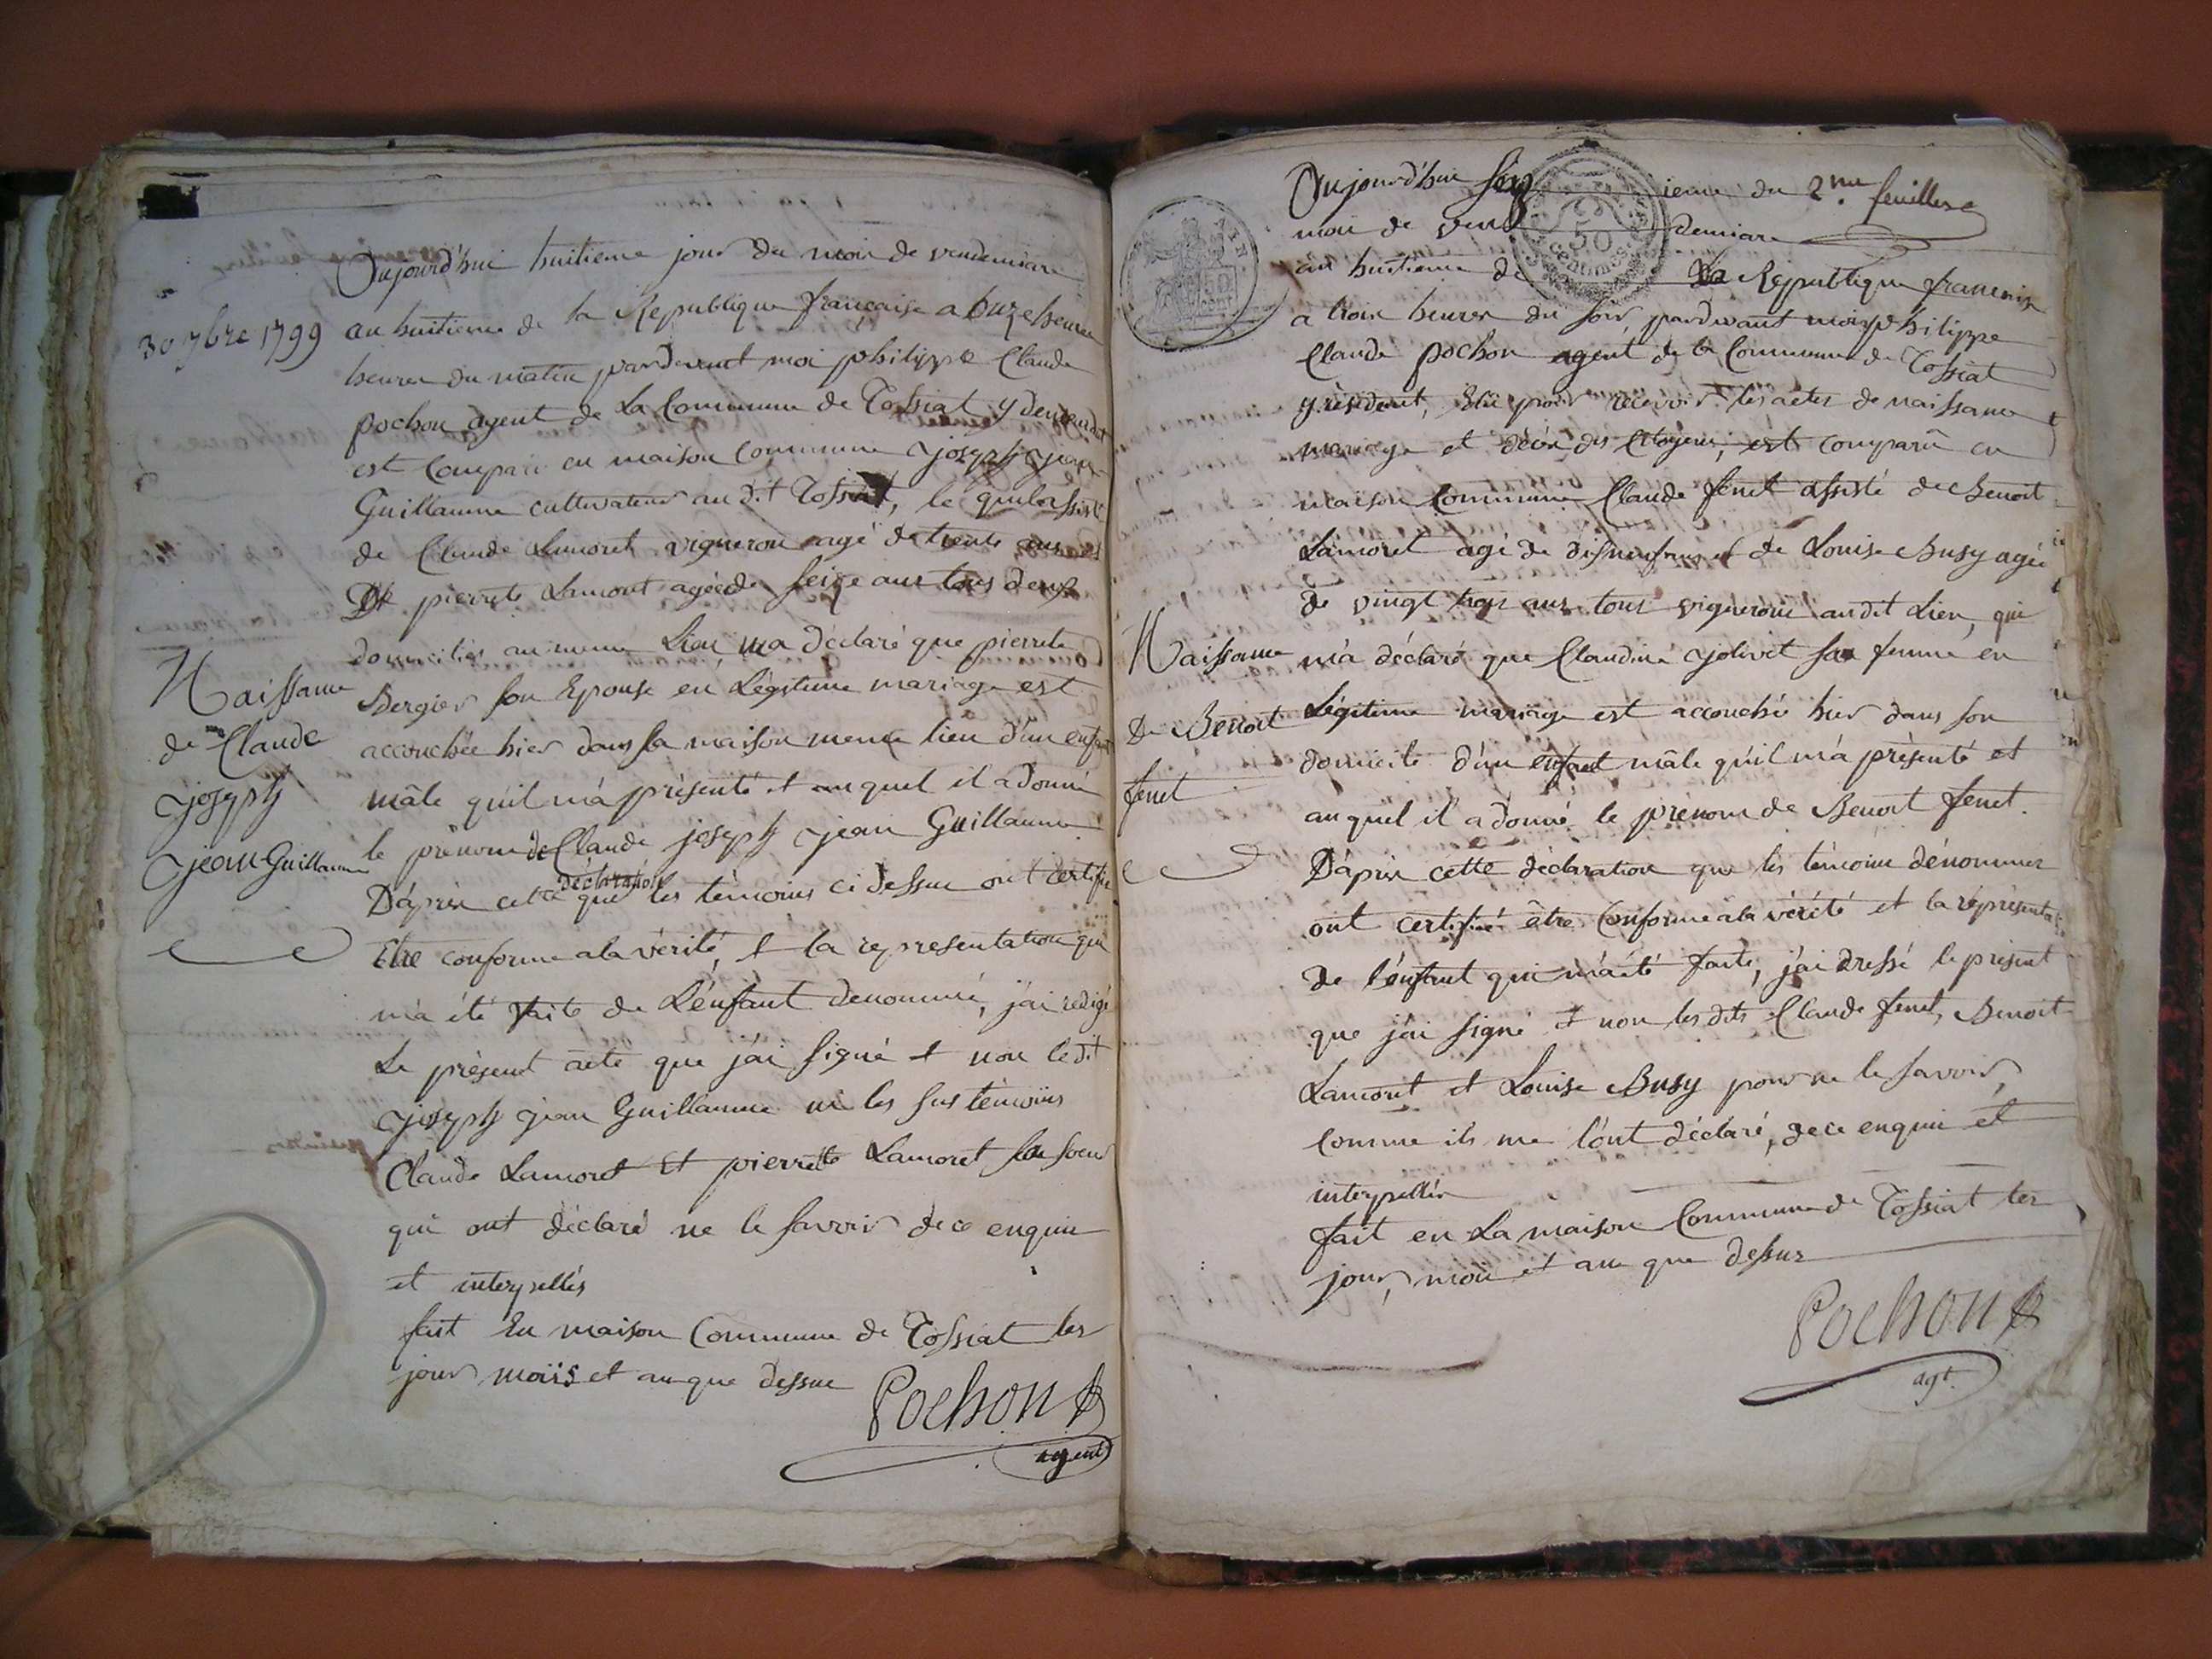 30 7bre 1799
Aujourd'hui huitieme jour du mois de vendemiaire
an huitieme de la Republique française a huze heures
heures du matin pardevant moi philippe Claude
pochon agent de La Commune de Tossiat y demeurant
est comparu en maison Commune joseph jean
Guillaume cultivateur au dit Tossiat, le quel assisté
de Claude Lamoret vigneron agé de trente ans et
De pierrete Lamoret agée de seize ans tous deux
domiciliés au meme Lieu, m'a déclaré que pierrete
Bergier son Epouse en Légitime mariage est
accouchée hier dans sa maison meme lieu d'un enfant
mâle qu'il m'a présenté et auquel il a donné
le prénom de Claude joseph jean Guillaume
D'après cette déclaration que les témoins ci dessus ont certifié
Etre conforme a la vérité, et la representation qui
m'a été faite de L'enfant denommé, j'ai redigé
Le présent acte que j'ai signé et non le dit
joseph jean Guillaume ni les sus témoins
Claude Lamoret Et pierrette Lamoret sa soeur
qui ont déclaré ne le savoir de ce enquis
et interpellés
fait En maison Commune de Tossiat les
jour mois et an que dessus
Pochon
agent
Naissance
de Claude
joseph
jean Guillaume
2me feuillet
Aujourd'hui sixieme du
mois de vendemiaire
an huitieme de La Republique francaise
a trois heures du soir, pardevant moi philippe
Claude pochon agent de la Commune de Tossiat
y résident, élu pour recevoir les actes de naissance
mariage et décès des Citoyens, est comparû en
maison Commune Claude fenet assisté de Benoit
Lamoret agé de disneuf ans et de Louise Busy agée
de vingt trois ans tous vignerons au dit Lieu, qui
m'a déclaré que Claudine jolivet sa femme en
Légitime mariage est accouché hier dans son
domicile d'un enfant mâle qu'il m'a présenté et
auquel il a donné le prénom de Benoit fenet.
D'après cette déclaration que les témoins dénommés
ont certifié être Conforme a la vérité et la réprésentat
de l'enfant qui m'a été faite, j'ai dressé le présent
que j'ai signé et non les dits Claude fenet, Benoit
Lamoret et Louise Busy pour ne le savoir,
comme ils me l'ont déclaré, de ce enquis et
interpellés
fait en La maison Commune de Tossiat les
jour, mois et an que dessus
Pochon
agt.
Naissance
De Benoit
fenet
50
centimes